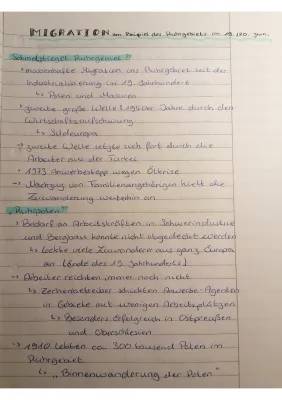 MIGRATION am Beispiel des Ruhrgebiets im 19./20. Jhr.
Schmelztiegel Ruhrgebiet?
massenhafte Migration ins Ruhrgebiet seit der
Industrialisierung im 19. Jahrhundert
↳ Polen und Masuren
zweite große Welle: 1950er Jahre durch den
Wirtschaftsaufschwung
↳ Südeuropa
zweite Welle setzte sich fort durch die
Arbeiter aus der Türkei
1973 Anwerbestopp wegen Ölkrise
Nachzug von Familienangehörigen hielt die
Zuwanderung weiterhin an
„Ruhrpolen"
→ Bedarf an Arbeitskräften in Schwerindustrie
und Bergbau konnte nicht abgedeckt werden
↳ lockte viele Zuwanderer aus ganz Europa
an (Ende des 19. Jahrhunderts)
→ Arbeiter reichten immer noch nicht
↳ Zechenbetreiber schickten Anwerbe-Agenten
in Gebiete mit wenigen Arbeitsplätzen
↳ Besonders erfolgreich in Ostpreußen
und Oberschlesien
→ 1910 lebten ca. 300 tausend Polen im
Ruhrgebiet
↳ „Binnenwanderung der Polen"